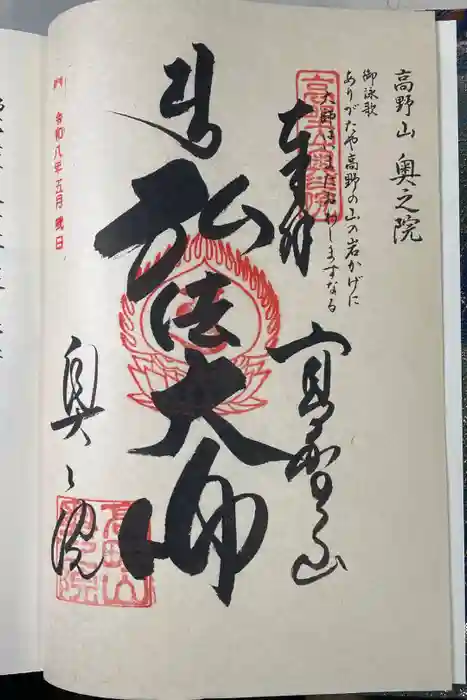 高野山 奥之院
御詠歌
ありがたや高野の山の岩かげに
大師はいまだおわしますなる
奉拝
高野山
弘法大師
奥之院
令和八年五月 日
高野山奥之院